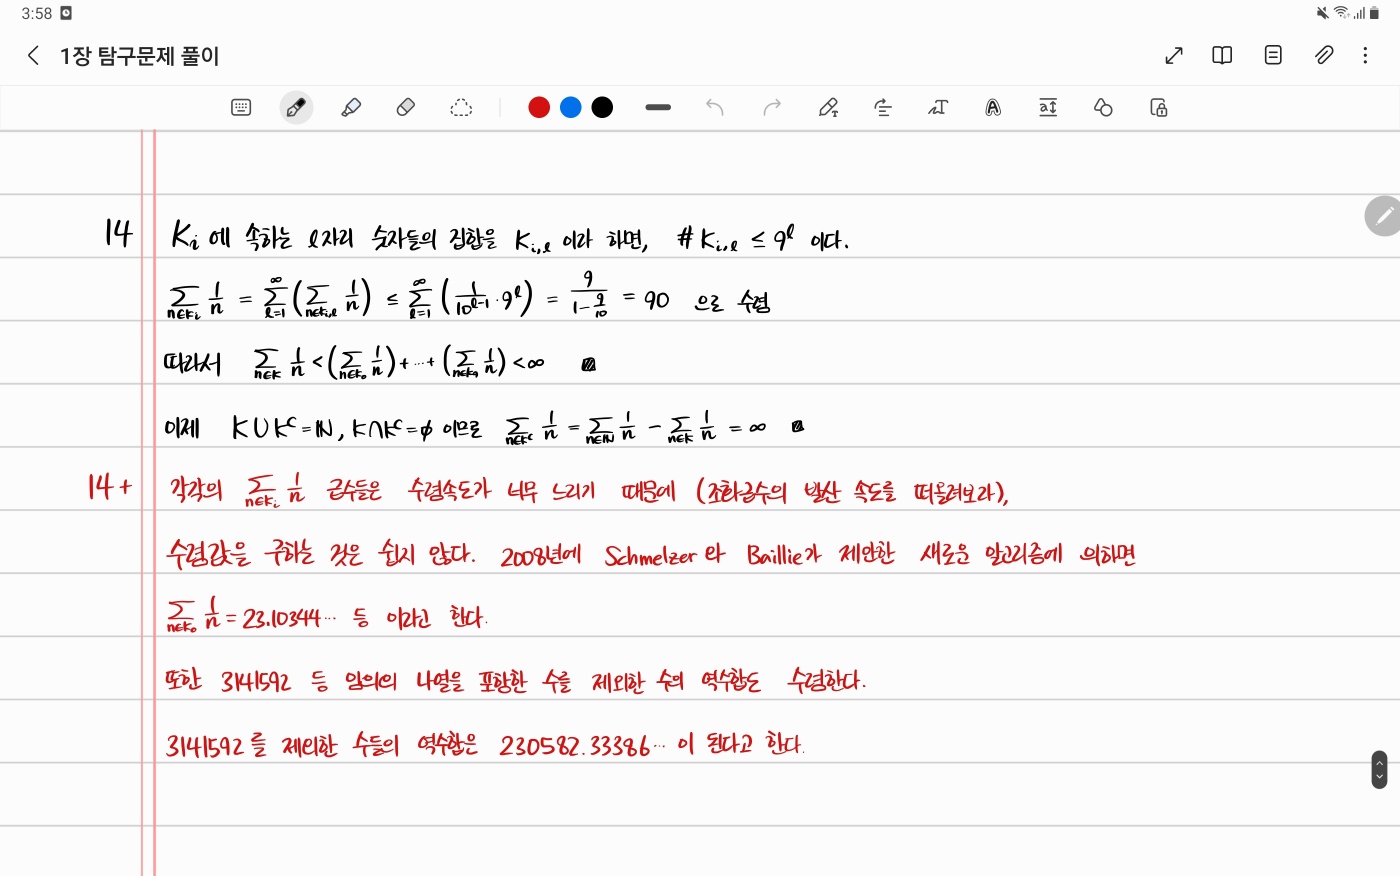 3:58
1장 탐구문제 풀이
14 K_i 에 속하는 ℓ자리 숫자들의 집합을 K_{i,ℓ} 이라 하면, #K_{i,ℓ} ≤ 9^ℓ 이다.
∑_{n∈K_i} 1/n = ∑_{ℓ=1}^{∞} (∑_{n∈K_{i,ℓ}} 1/n) ≤ ∑_{ℓ=1}^{∞} (1/10^{ℓ-1} · 9^ℓ) = 9/(1-9/10) = 90 으로 수렴
따라서 ∑_{n∈K} 1/n < (∑_{n∈K_0} 1/n) + ⋯ + (∑_{n∈K_9} 1/n) < ∞
이제 K∪K^c = ℕ, K∩K^c = ϕ 이므로 ∑_{n∈K^c} 1/n = ∑_{n∈ℕ} 1/n - ∑_{n∈K} 1/n = ∞
14+ 각각의 ∑_{n∈K_i} 1/n 급수들은 수렴속도가 너무 느리기 때문에 (조화급수의 발산 속도를 떠올려보라),
수렴값을 구하는 것은 쉽지 않다. 2008년에 Schmelzer와 Baillie가 제안한 새로운 알고리즘에 의하면
∑_{n∈K_0} 1/n = 23.10344⋯ 등 이라고 한다.
또한 3141592 등 임의의 나열을 포함한 수를 제외한 수의 역수합도 수렴한다.
3141592를 제외한 수들의 역수합은 230582.33386⋯ 이 된다고 한다.